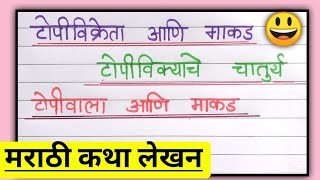 टोपीविक्रेता आणि माकड
टोपीविक्याचे चातुर्य
टोपीवाला आणि माकड
मराठी कथा लेखन